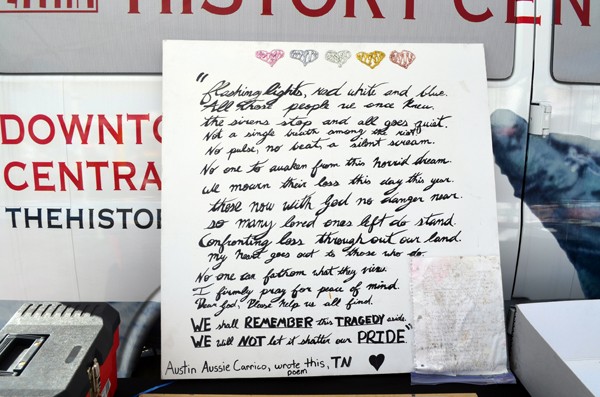 HISTORY CEN
DOWNTO
CENTRA
THEHISTO
"flashing lights, red white and blue.
All those people we once knew.
the sirens stop and all goes quiet.
Not a single breath among the riot,
No pulse, no beat, a silent scream.
No one to awaken from this horrid dream.
We mourn their loss this day this year.
those now with God no danger near.
so many loved ones left do stand.
Confronting loss throughout our land.
my heart goes out to those who do.
No one can fathom what they view.
I firmly pray for peace of mind.
Dear God, Please help us all find.
WE shall REMEMBER this TRAGEDY aside.
WE will NOT let it shatter our PRIDE."
Austin Aussie Carrico, wrote this, TN
poem